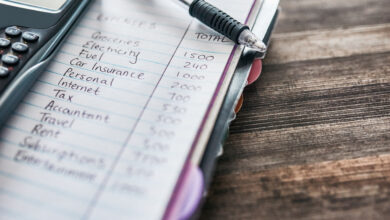 EXPENSES TOTAL
Groceries 1500
Electricity 240
Fuel 1000
Car Insurance 2000
Personal 700
Internet 500
Tax
Accountant 500
Travel 500
Rent
Subscriptions
Entertainment